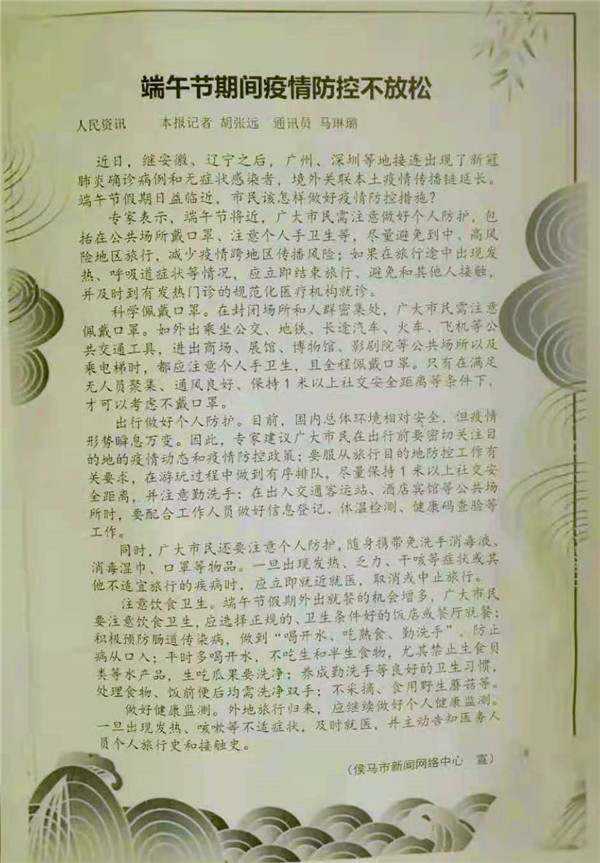 端午节期间疫情防控不放松
人民资讯 本报记者 胡张远 通讯员 马琳璐
近日，继安徽、辽宁之后，广州、深圳等地接连出现了新冠
肺炎确诊病例和无症状感染者，境外关联本土疫情传播链延长。
端午节假期日益临近，市民该怎样做好疫情防控措施？
专家表示，端午节将近，广大市民需注意做好个人防护，包
括在公共场所戴口罩、注意个人手卫生等，尽量避免到中、高风
险地区旅行，减少疫情跨地区传播风险；如果在旅行途中出现发
热、呼吸道症状等情况，应立即结束旅行、避免和其他人接触，
并及时到有发热门诊的规范化医疗机构就诊。
科学佩戴口罩。在封闭场所和人群密集处，广大市民需注意
佩戴口罩。如外出乘坐公交、地铁、长途汽车、火车、飞机等公
共交通工具，进出商场、展馆、博物馆、影剧院等公共场所以及
乘电梯时，都应注意个人手卫生，且全程佩戴口罩。只有在满足
无人员聚集、通风良好、保持1米以上社交安全距离等条件下，
才可以考虑不戴口罩。
出行做好个人防护。目前，国内总体环境相对安全，但疫情
形势瞬息万变。因此，专家建议广大市民在出行前要密切关注目
的地的疫情动态和疫情防控政策；要服从旅行目的地防控工作有
关要求，在游玩过程中做到有序排队，尽量保持1米以上社交安
全距离，并注意勤洗手；在出入交通客运站、酒店宾馆等公共场
所时，要配合工作人员做好信息登记、体温检测、健康码查验等
工作。
同时，广大市民还要注意个人防护，随身携带免洗手消毒液、
消毒湿巾、口罩等物品。一旦出现发热、乏力、干咳等症状或其
他不适宜旅行的疾病时，应立即就近就医，取消或中止旅行。
注意饮食卫生。端午节假期外出就餐的机会增多，广大市民
要注意饮食卫生，应选择正规的、卫生条件好的饭店或餐厅就餐；
积极预防肠道传染病，做到“喝开水、吃熟食、勤洗手”，防止
病从口入；平时多喝开水，不吃生和半生食物，尤其禁止生食贝
类等水产品，生吃瓜果要洗净；养成勤洗手等良好的卫生习惯，
处理食物、饭前便后均需洗净双手；不采摘、食用野生蘑菇等。
做好健康监测。外地旅行归来，应继续做好个人健康监测。
一旦出现发热、咳嗽等不适症状，及时就医，并主动告知医务人
员个人旅行史和接触史。
（侯马市新闻网络中心 宣）